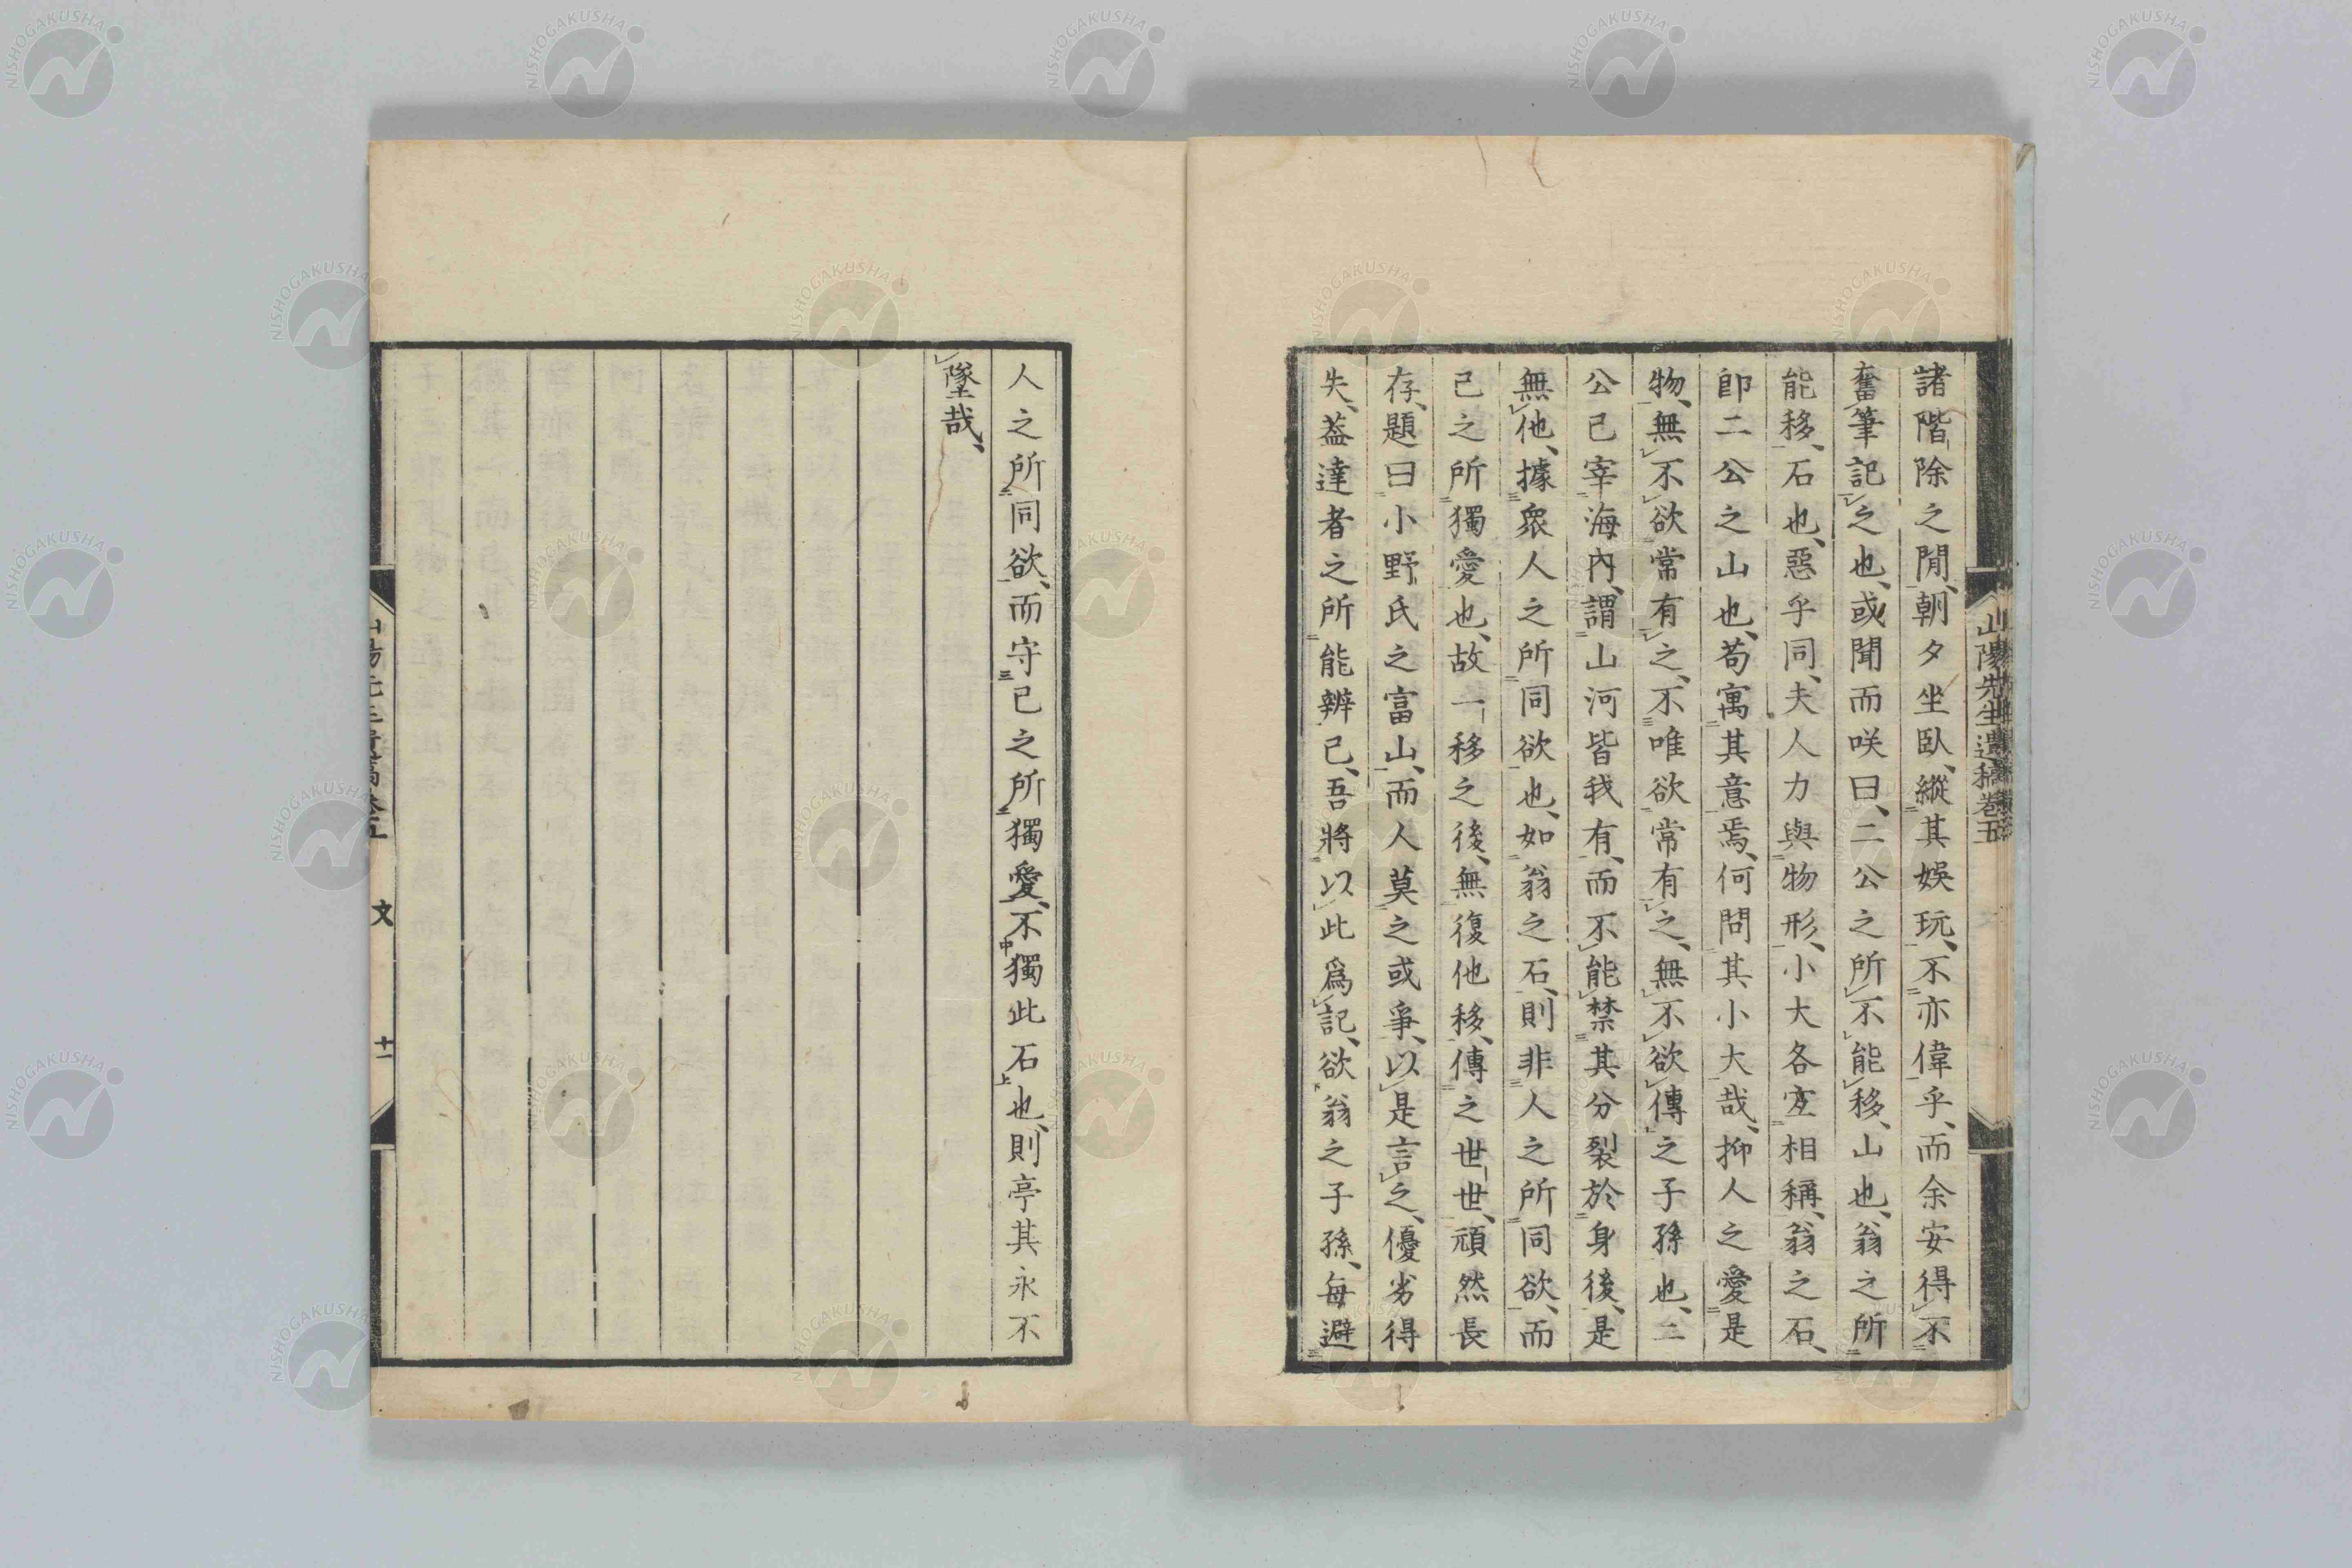 山陽先生遺稿卷五
諸階除之閒、朝夕坐臥、縱其娛玩、不亦偉乎、而余安得不
奮筆記之也、或聞而咲曰、二公之所不能移、山也、翁之所
能移、石也、惡乎同、夫人力與物形、小大各宜相稱、翁之石、
卽二公之山也、苟寓其意焉、何問其小大哉、抑人之愛是
物、無不欲常有之、不唯欲常有之、無不欲傳之子孫也、二
公已宰海內、謂山河皆我有、而不能禁其分裂於身後、是
無他、據衆人之所同欲也、如翁之石、則非人之所同欲、而
己之所獨愛也、故一移之後、無復他移、傳之世世、頑然長
存、題曰小野氏之富山、而人莫之或爭、以是言之、優劣得
失、蓋達者之所能辨已、吾將以此爲記、欲翁之子孫、每避
人之所同欲、而守己之所獨愛、不獨此石也、則亭其永不
墜哉、
文
十一
NISHOGAKUSHA